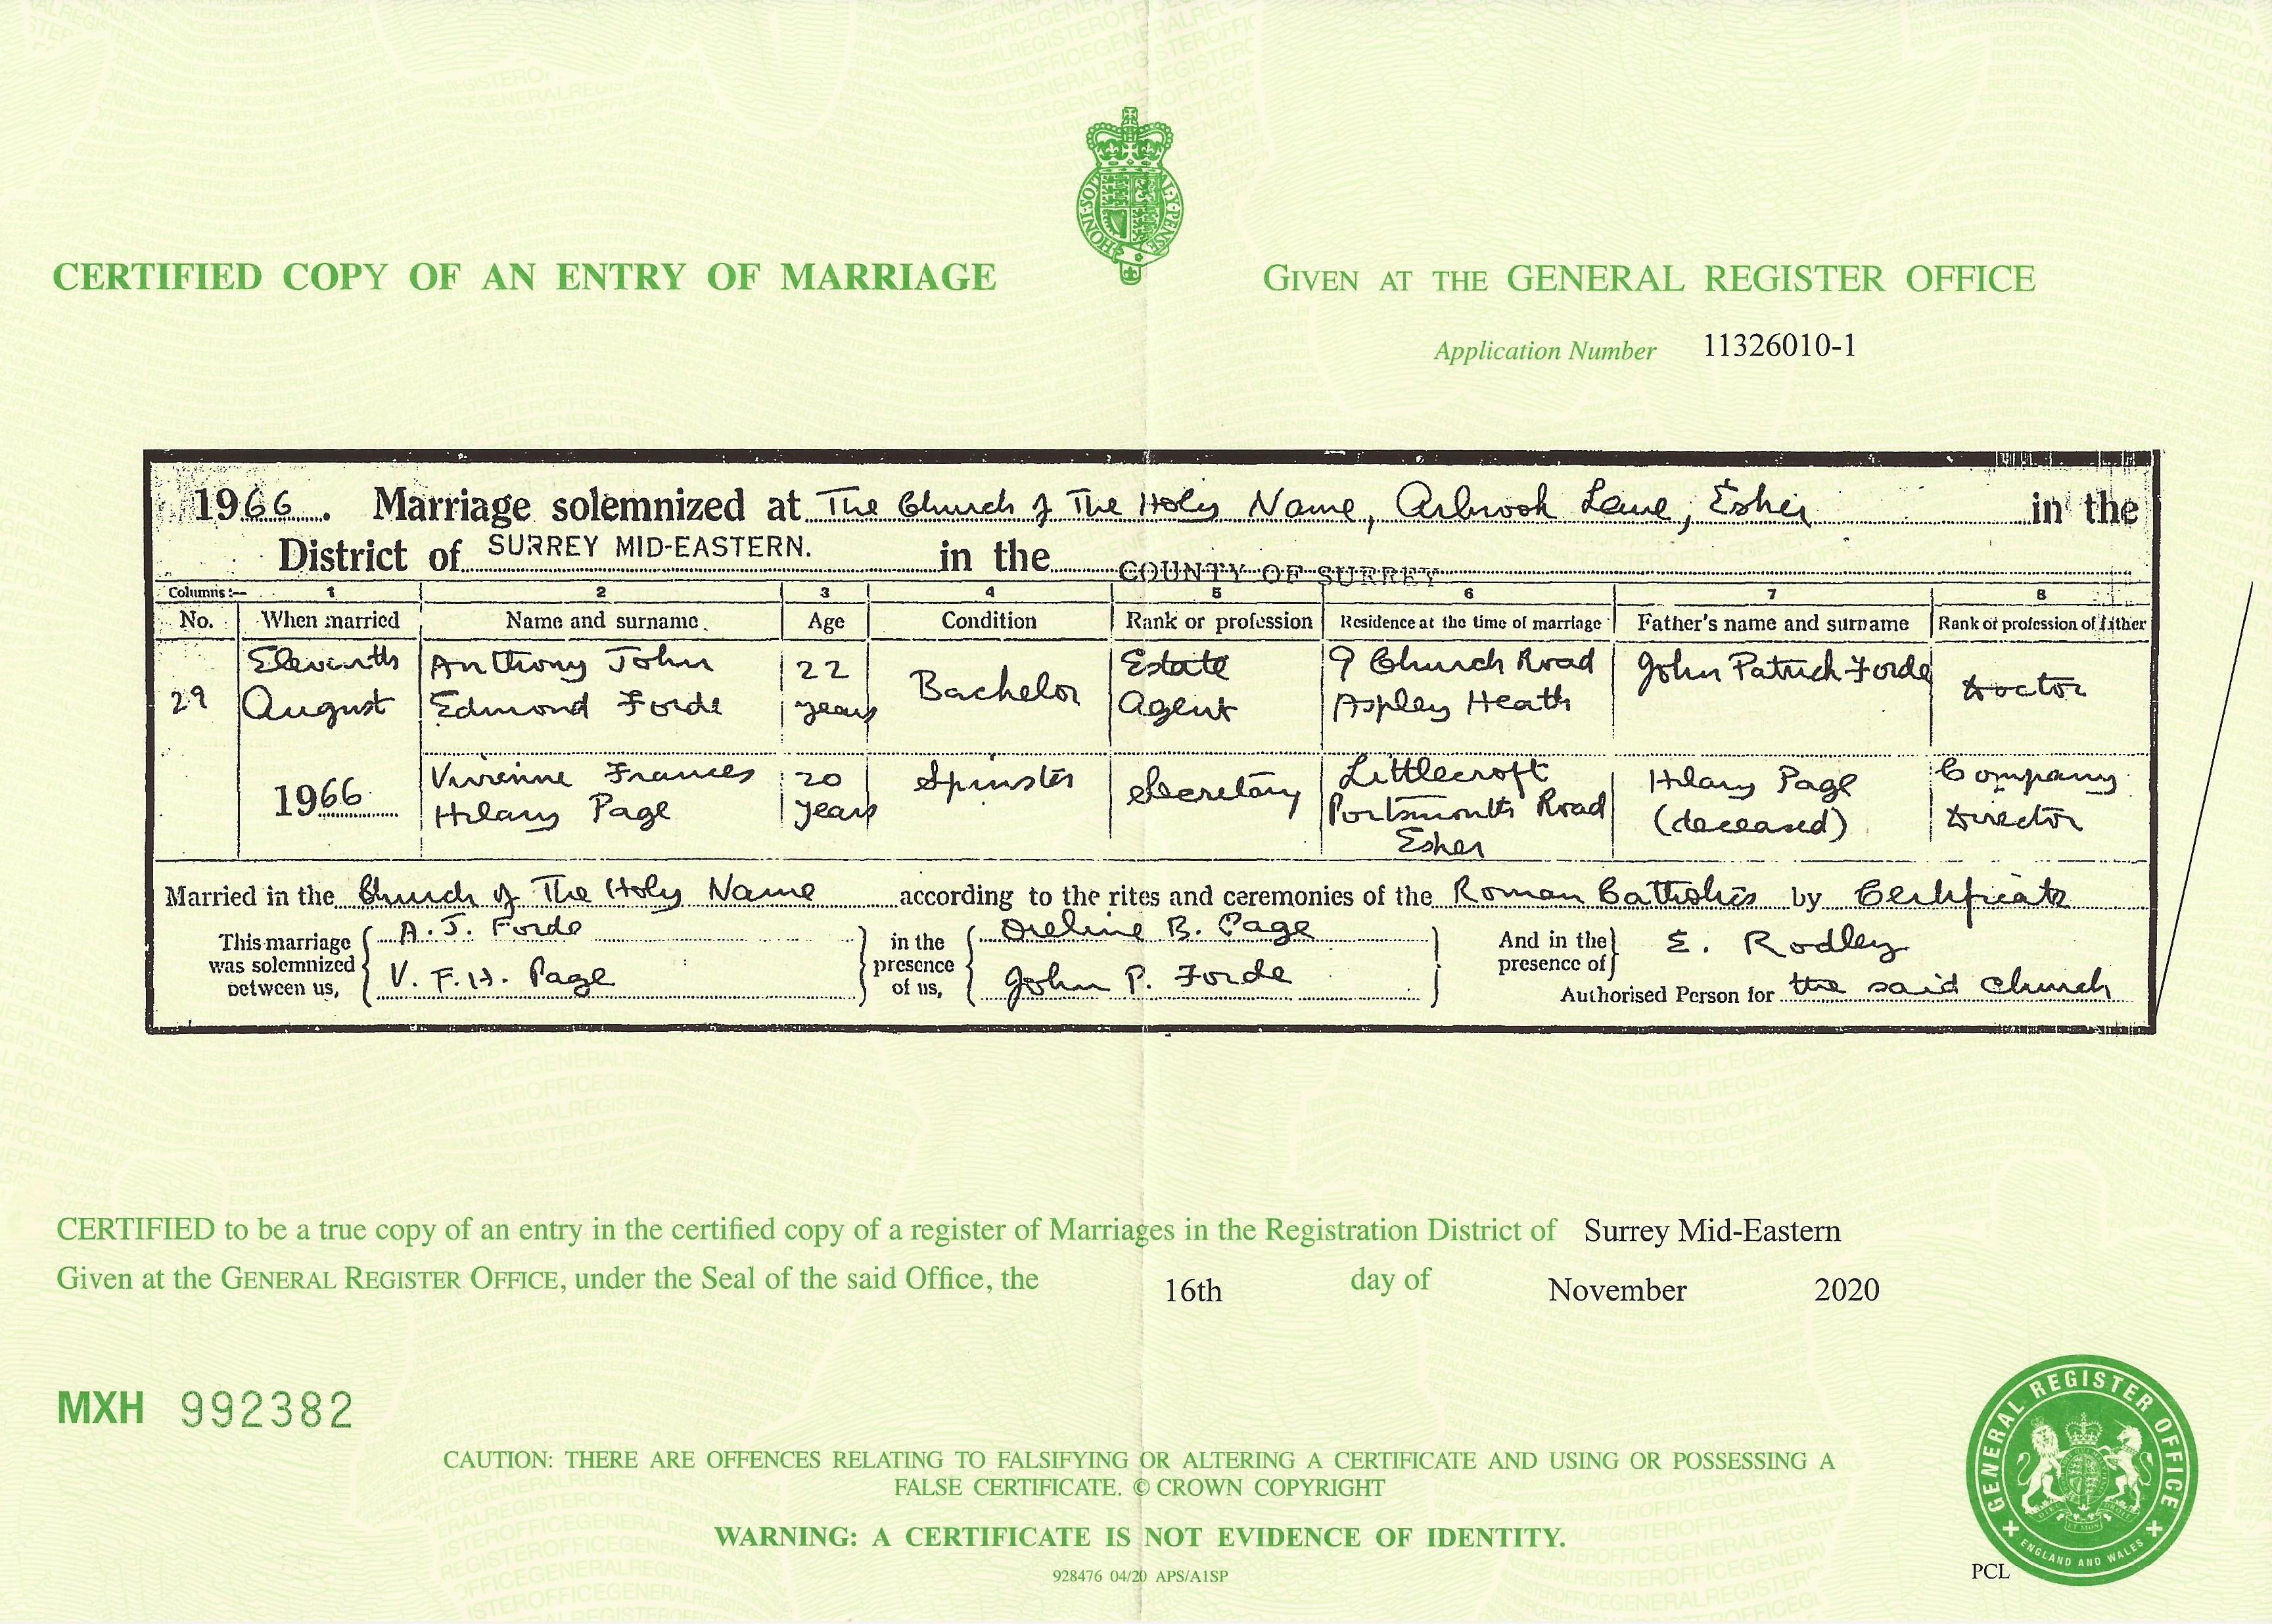 CERTIFIED COPY OF AN ENTRY OF MARRIAGE
GIVEN AT THE GENERAL REGISTER OFFICE
Application Number 11326010-1
1966. Marriage solemnized at The Church of The Holy Name, Arbrook Lane, Esher in the
District of SURREY MID-EASTERN. in the COUNTY OF SURREY
Columns:— 1 2 3 4 5 6 7 8
No. When married Name and surname Age Condition Rank or profession Residence at the time of marriage Father's name and surname Rank or profession of father
29
Eleventh
August
1966
Anthony John
Edmond Forde
22
years
Bachelor
Estate
Agent
9 Church Road
Aspley Heath
John Patrick Forde
Doctor
Vivienne Frances
Hilary Page
20
years
Spinster
Secretary
Littlecroft
Portsmouth Road
Esher
Hilary Page
(deceased)
Company
Director
Married in the Church of The Holy Name according to the rites and ceremonies of the Roman Catholics by Certificate
This marriage
was solemnized
between us,
A. J. Forde
V. F. H. Page
in the
presence
of us,
Oreline B. Page
John P. Forde
And in the
presence of
E. Rodley
Authorised Person for the said church
CERTIFIED to be a true copy of an entry in the certified copy of a register of Marriages in the Registration District of Surrey Mid-Eastern
Given at the GENERAL REGISTER OFFICE, under the Seal of the said Office, the 16th day of November 2020
MXH 992382
CAUTION: THERE ARE OFFENCES RELATING TO FALSIFYING OR ALTERING A CERTIFICATE AND USING OR POSSESSING A
FALSE CERTIFICATE. © CROWN COPYRIGHT
WARNING: A CERTIFICATE IS NOT EVIDENCE OF IDENTITY.
928476 04/20 APS/A1SP
PCL
GENERAL REGISTER OFFICE
ENGLAND AND WALES